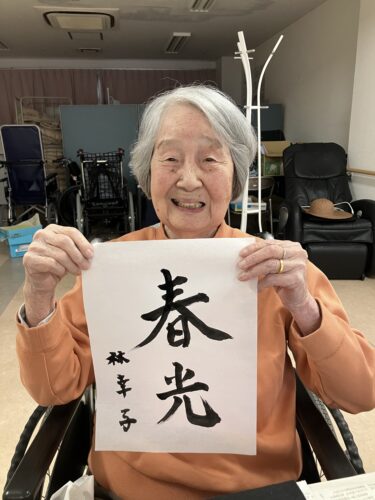 春光
林幸子